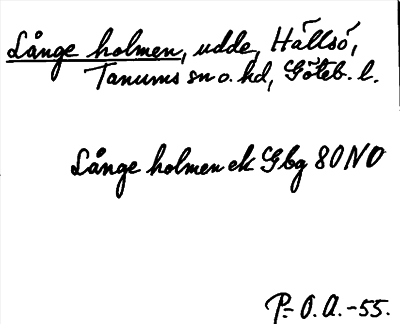 Långe holmen, udde, Hällsö,
Tanums sn o. hd, Göteb. l.
Långe holmen ek Gbg 80 NO
P.O.A.-55.